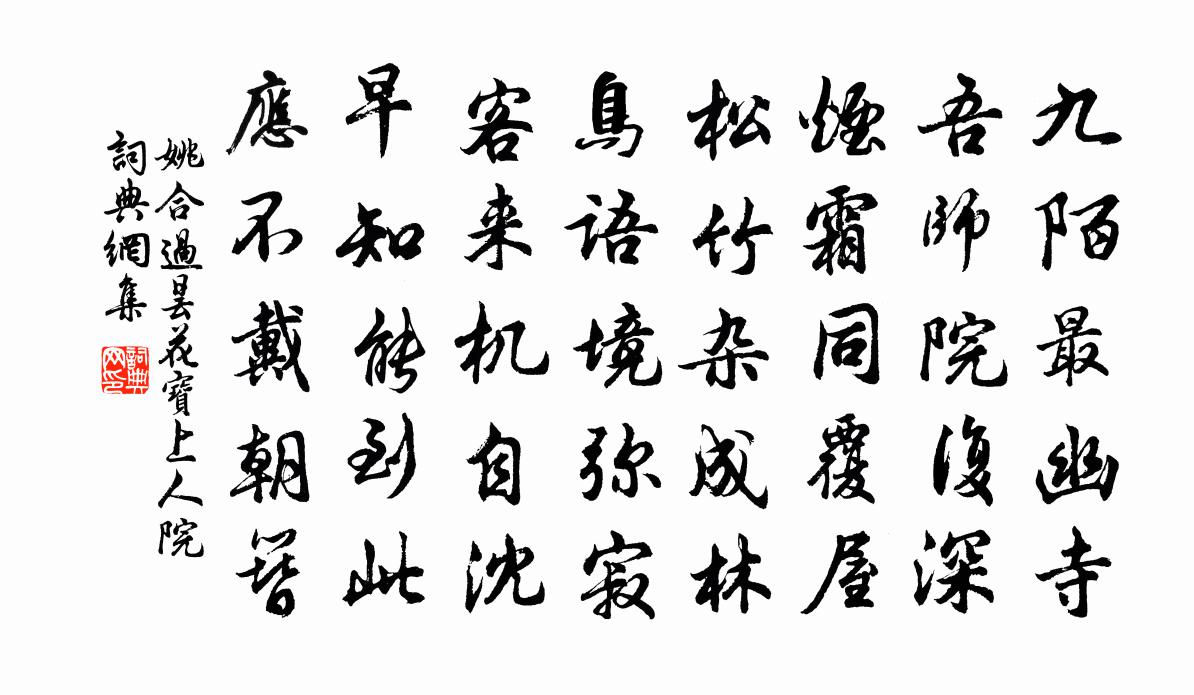 九陌最幽寺
吾師院復深
煙霜同覆屋
松竹杂成林
鳥語境弥寂
客来机自沈
早知能到此
應不戴朝簪
姚合過曇花寶上人院
詞典網集
詞典网印